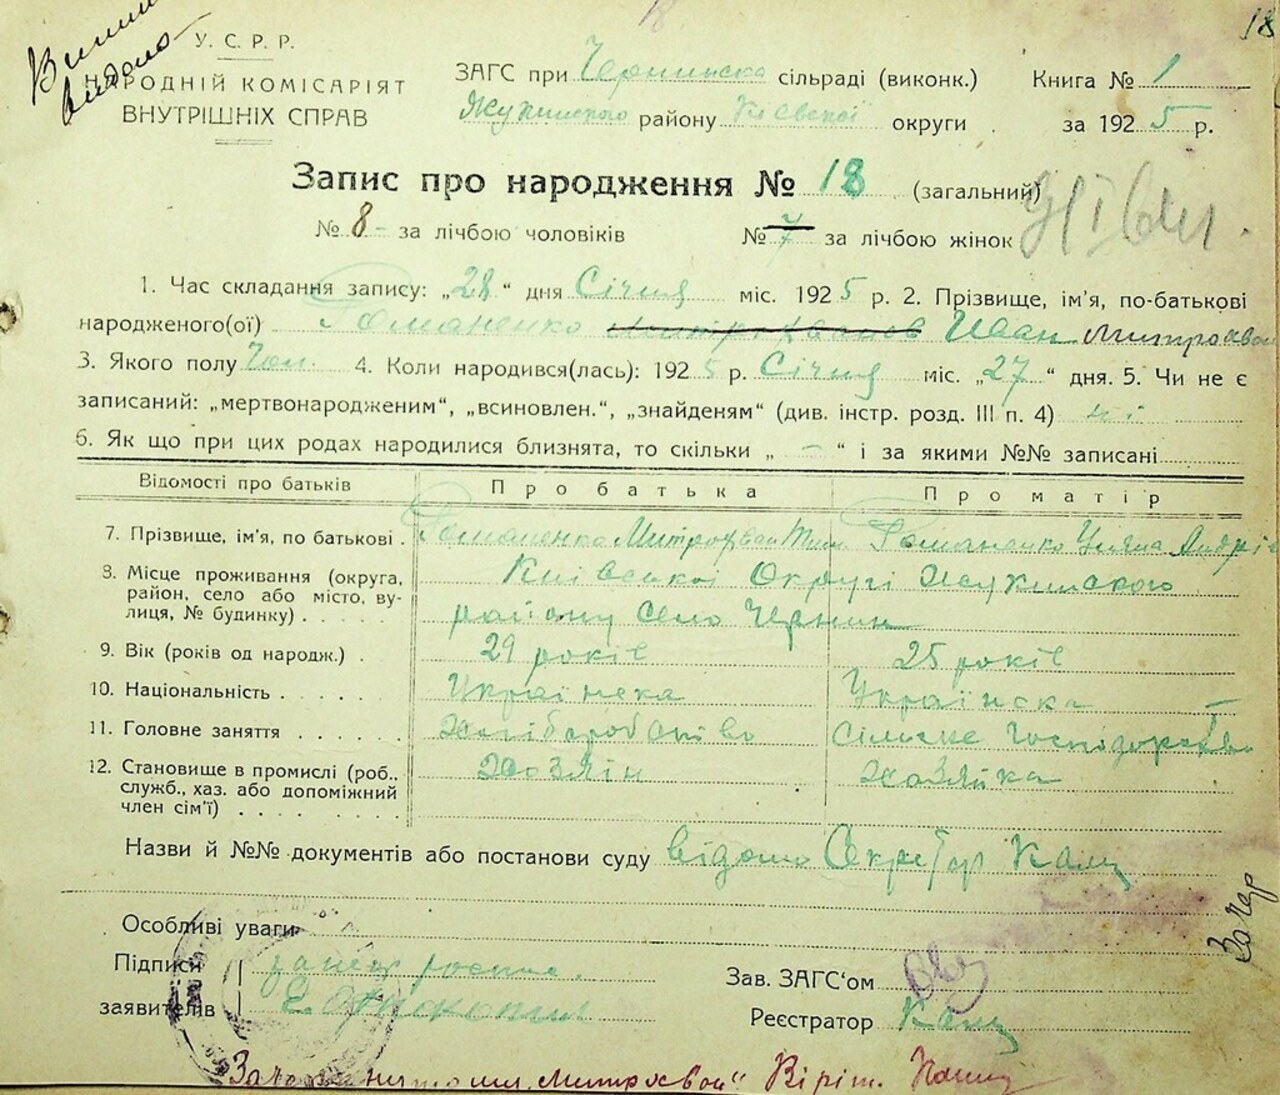 18
У. С. Р. Р.
НАРОДНІЙ КОМІСАРІЯТ
ВНУТРІШНІХ СПРАВ
ЗАГС при Чернинска сільраді (виконк.) Книга № 1
Жукинского району Києвскої округи за 1925 р.
Запис про народження № 18 (загальний)
№ 8 – за лічбою чоловіків № 7 за лічбою жінок
1. Час складання запису: „28“ дня Січня міс. 1925 р. 2. Прізвище, ім'я, по-батькові
народженого(ої) Романенко Иван Митрофван
3. Якого полу Чол. 4. Коли народився(лась): 1925 р. Січня міс. „27“ дня. 5. Чи не є
записаний: „мертвонародженим“, „всиновлен.“, „знайденям“ (див. інстр. розд. III п. 4) ні
6. Як що при цих родах народилися близнята, то скільки „ – “ і за якими №№ записані
Відомості про батьків Про батька Про матір
7. Прізвище, ім'я, по батькові . Романенко Митрофван Тим. Романенко Уляна Андрі
8. Місце проживання (округа, Київської Округі Жукинского
район, село або місто, ву-
лиця, № будинку) . . . . . району село Чернин
9. Вік (років од народж.) . 29 років 25 років
10. Національність . . . . . Українска Українска
11. Головне заняття . . . . . . Хліборобство Сільське Господарство
12. Становище в промислі (роб., Хозяїн Хазяйка
служб., хаз. або допоміжний
член сім'ї) . . . . . . .
Назви й №№ документів або постанови суду відомо Секретар
Особливі уваги
Підписи
заявителів
Зав. ЗАГС'ом
Реєстратор